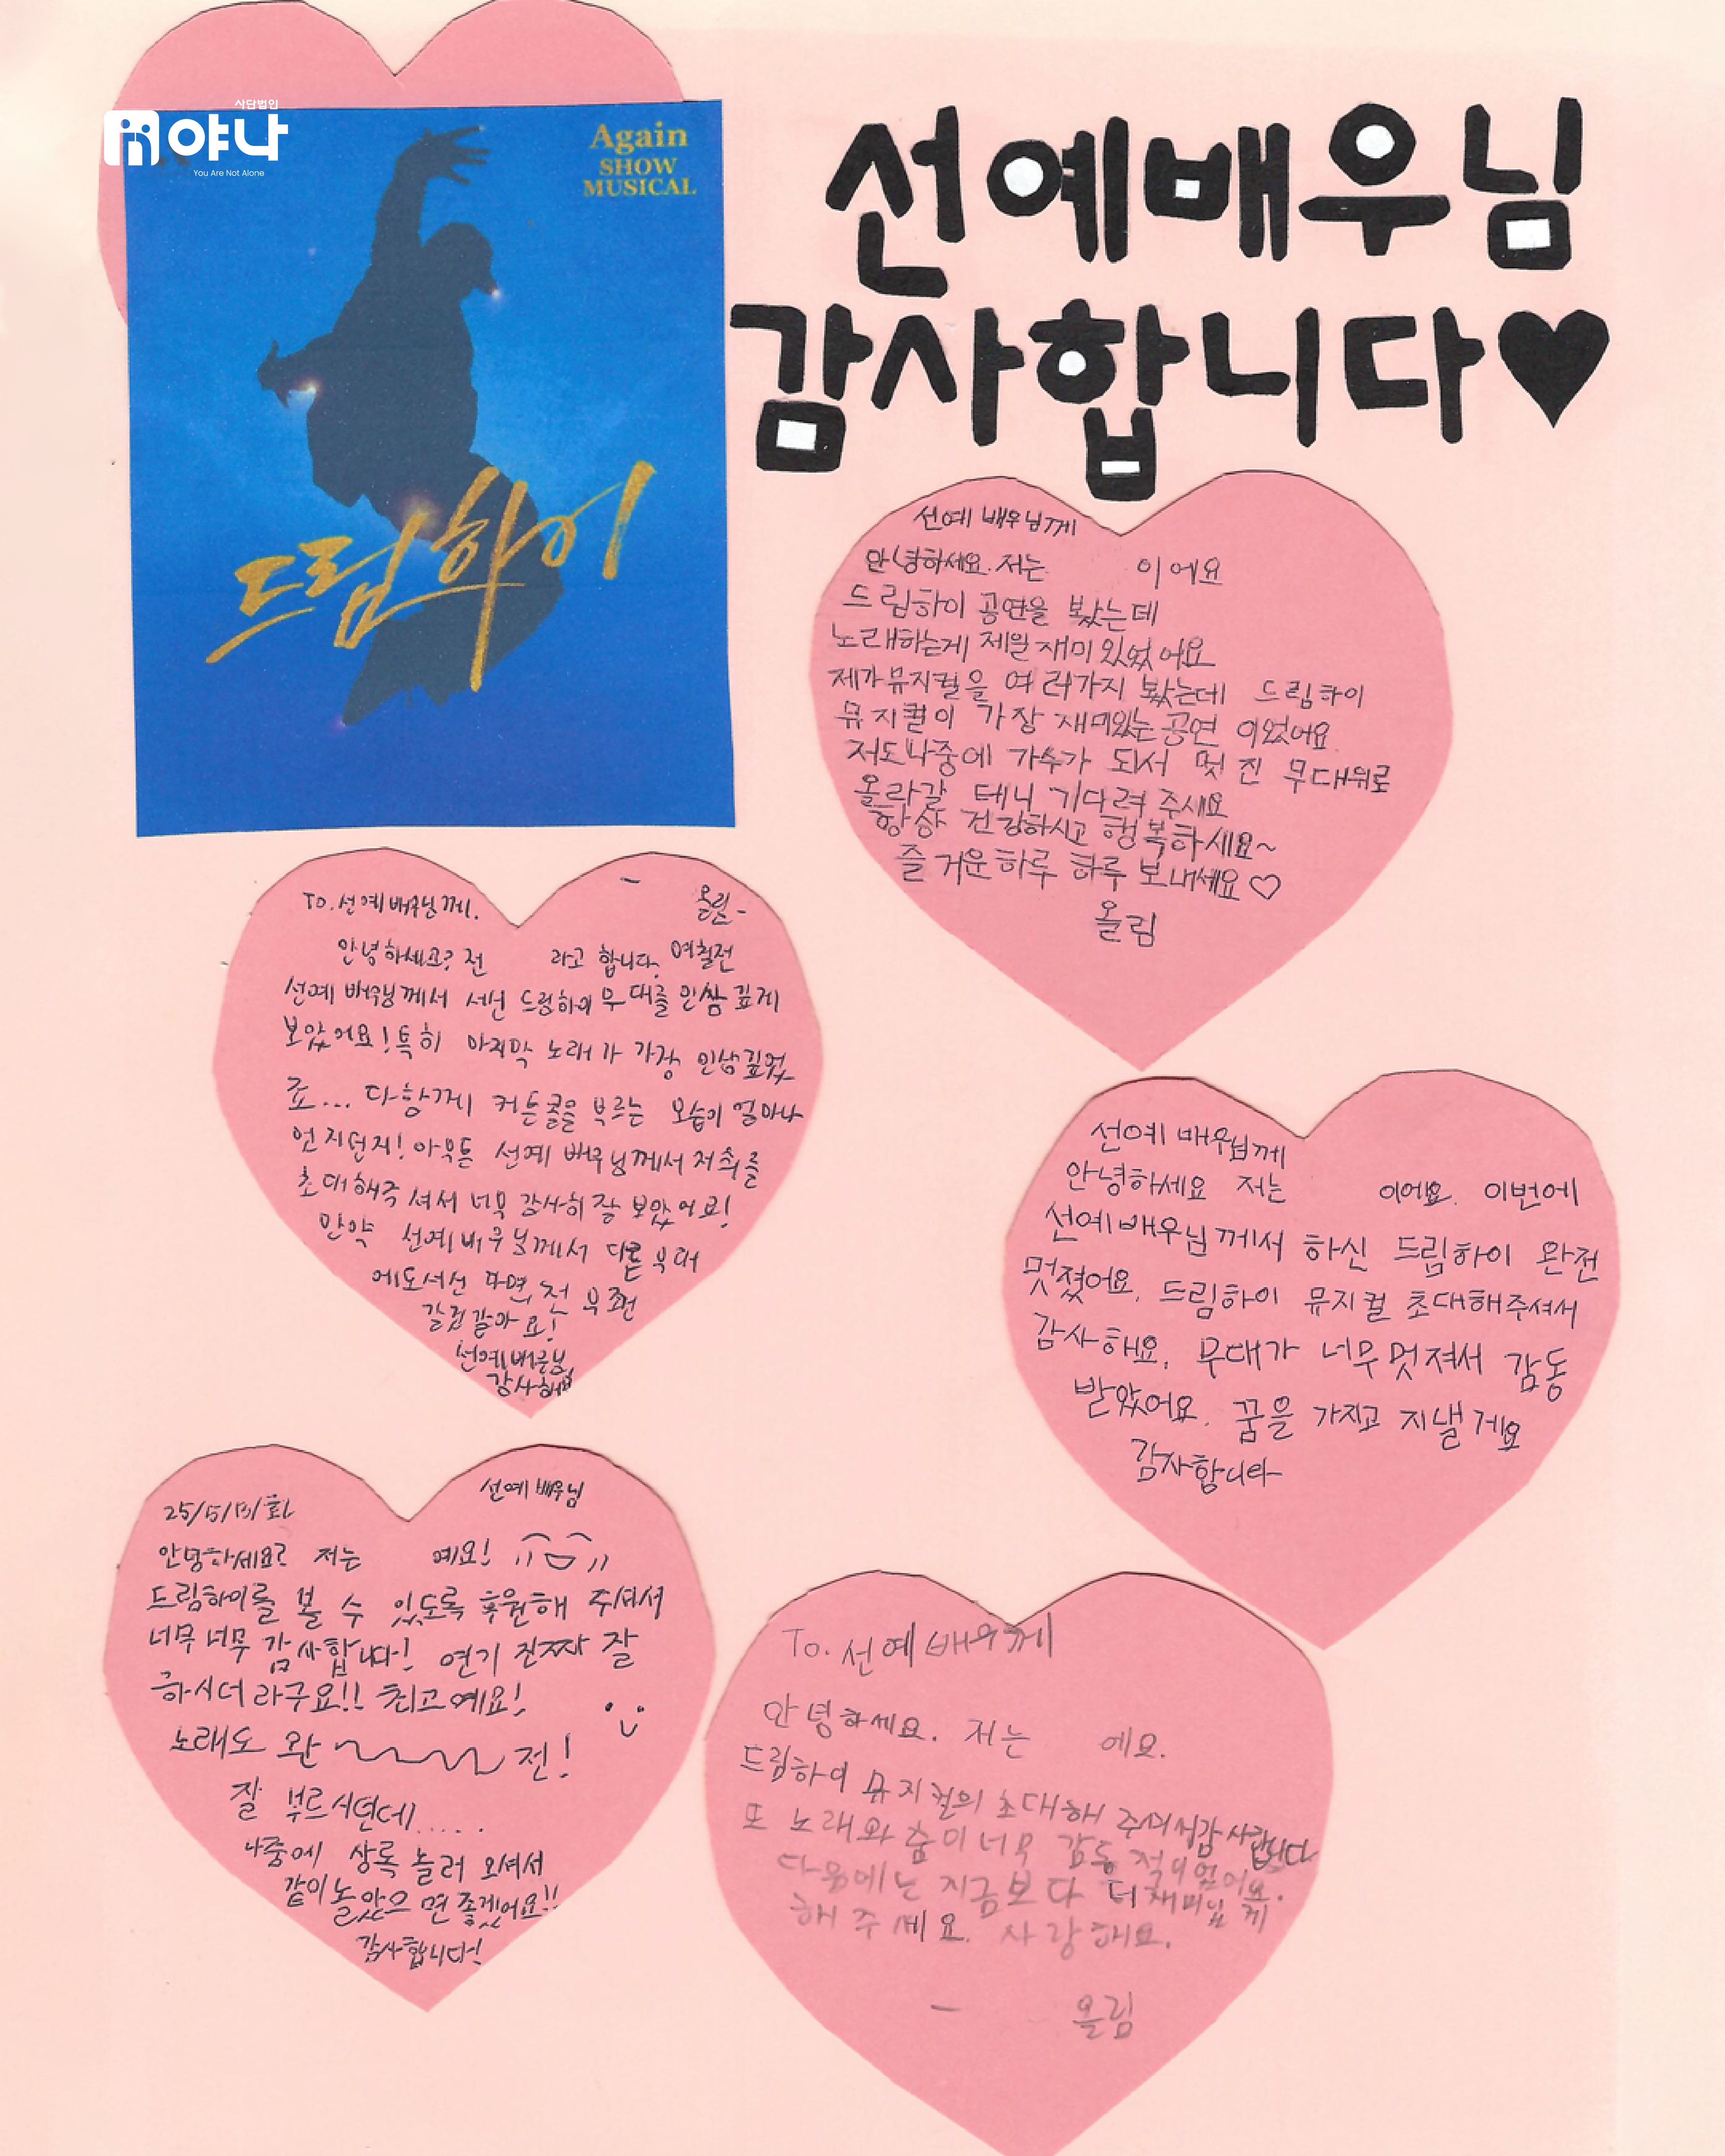 사단법인
야나
You Are Not Alone
Again
SHOW
MUSICAL
드림하이
선예배우님
감사합니다♥
선예 배우님께
안녕하세요. 저는 이에요
드림하이 공연을 봤는데
노래하는게 제일 재미있었어요
제가 뮤지컬을 여러가지 봤는데 드림하이
뮤지컬이 가장 재미있는 공연 이었어요
저도 나중에 가수가 되서 멋진 무대위로
올라갈 테니 기다려 주세요
항상 건강하시고 행복하세요~
즐거운하루 하루 보내세요♡
올림
To.선예배우님께.
- 올림-
안녕하세요? 전 라고 합니다. 며칠전
선예 배우님께서 서신 드림하이 무대를 인쌍 깊게
보았어요! 특히 마지막 노래가 가장 인상깊었
죠... 다함께 커튼콜을 부르는 모습이 얼마나
언지던지! 아무튼 선예 배우님께서 저희를
초대해주셔서 너무 감사히 잘 보았어요!
만약 선예배우님께서 다른 무대
에도서신다면, 전 무조건
갈것같아요!
선예배우님
감사해요
선예 배우님께
안녕하세요 저는 이에요. 이번에
선예배우님께서 하신 드림하이 완전
멋졌어요. 드림하이 뮤지컬 초대해주셔서
감사해요. 무대가 너무멋져서 감동
받았어요. 꿈을 가지고 지낼게요
감사합니다
선예 배우님
25/5/13/화
안녕하세요? 저는 예요!
드림하이를 볼 수 있도록 후원해 주셔서
너무너무 감사합니다! 연기 진짜 잘
하시더라구요!! 최고예요!
노래도 완~~~전!
잘 부르시던데.....
나중에 상록 놀러 오셔서
같이놀았으면 좋겠어요!!
감사합니다!
To. 선예배우께
안녕하세요. 저는 에요.
드림하이 뮤지컬의 초대해 주셔서감사합니다
또 노래와 춤이 너무 감동적이었어요.
다음에는 지금보다 더재미있게
해주세요. 사랑해요.
- 올림